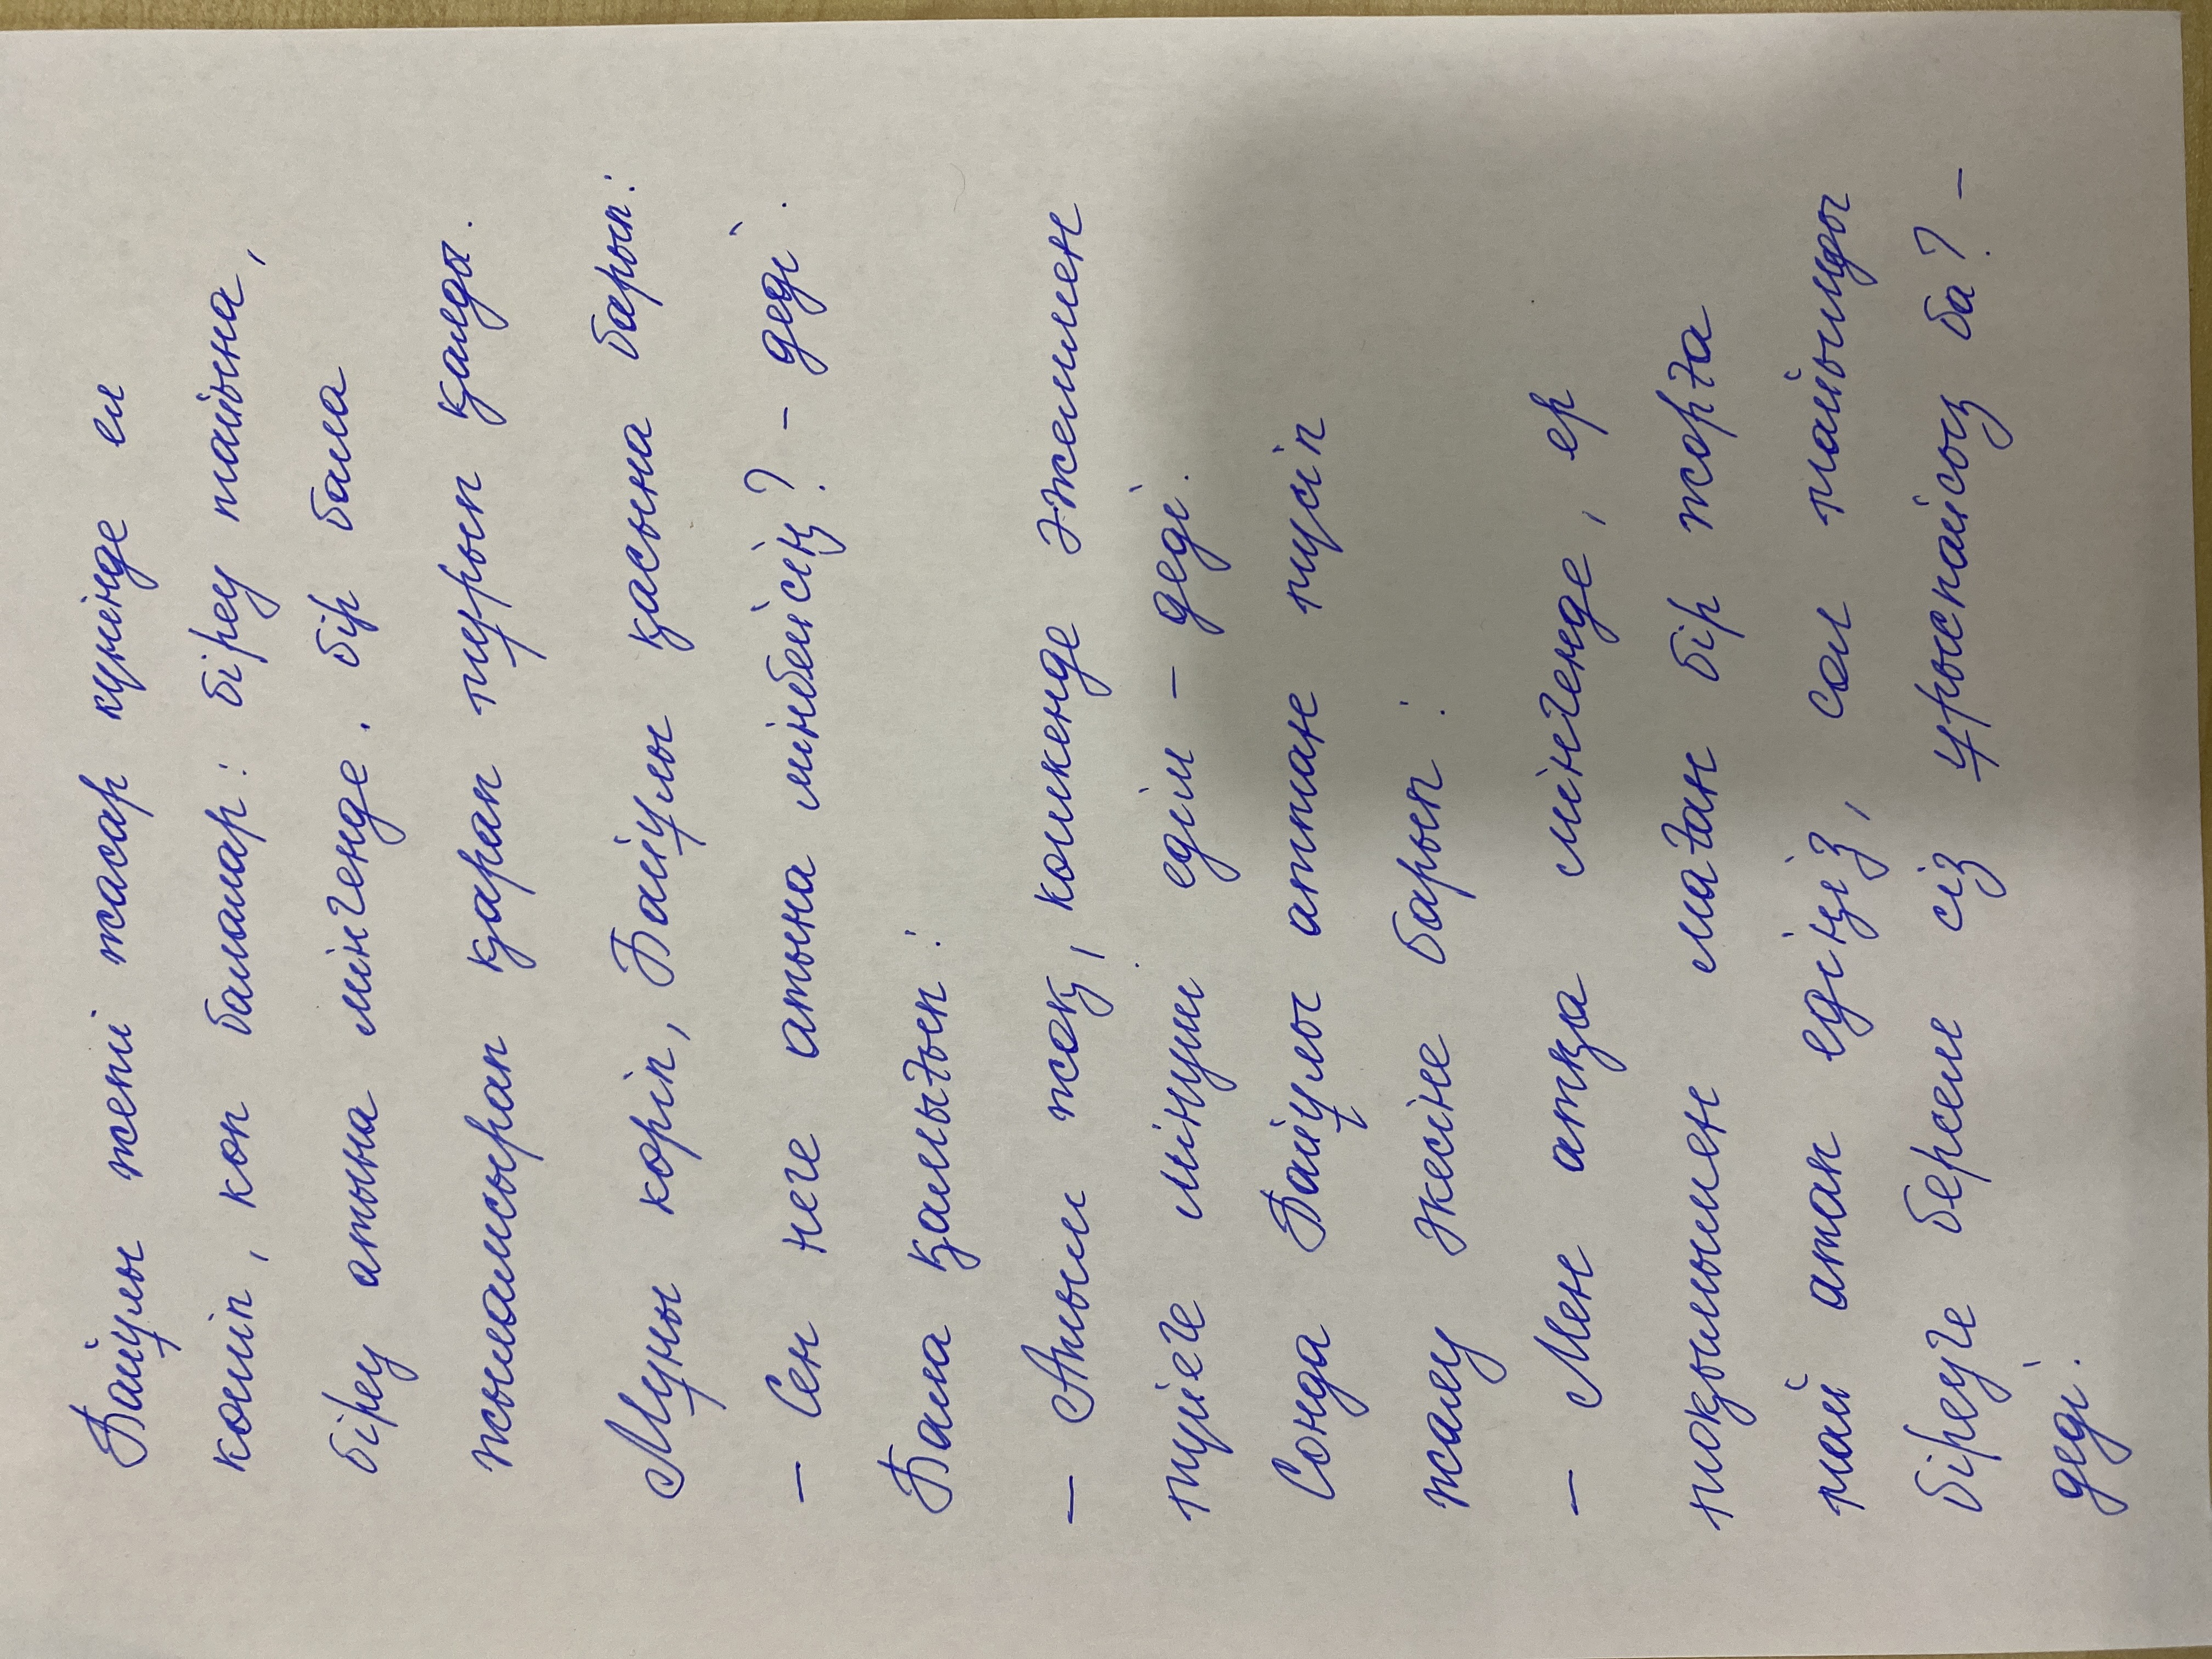 Байұлы жеті жасар күнінде ел
көшіп, көп балалар: біреу тайына,
біреу атына мінгенде. бір бала
жыламсырап қарап тұрып қалды.
Мұны көріп, Байұлы қасына барып:
– Сен неге атыңа мінбейсің? – деді.
Бала қамығып:
– Атым жоқ, көшкенде әжеммен
түйеге мінуші едім – деді.
Сонда Байұлы аттан түсіп
жаяу әкесіне барып:
– Мен атқа мінгенде, ер
тоқымымен маған бір жорға
тай атап едіңіз, сол тайымды
біреуге берсем сіз ұрыспайсыз ба? –
деді.